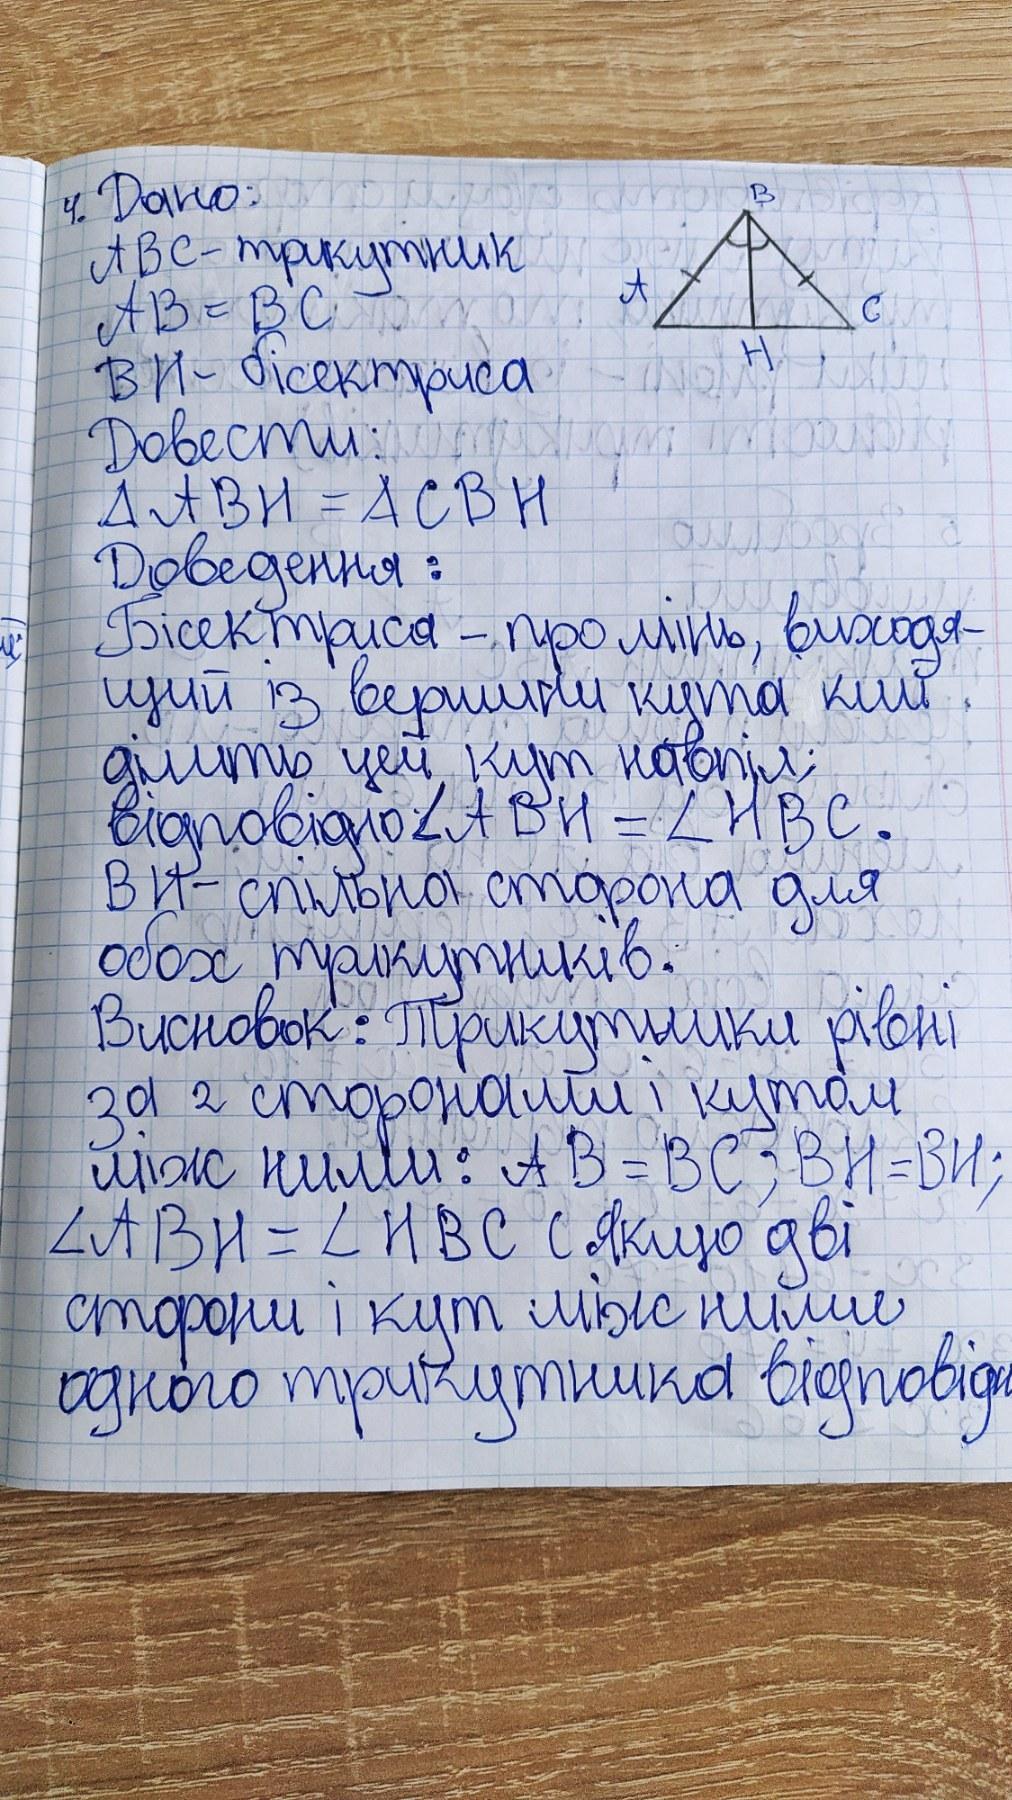 4. Дано:
ABC - трикутник
AB = BC
BH - бісектриса
Довести:
Δ ABH = Δ CBH
Доведення:
Бісектриса - промінь, виходя-
щий із вершини кута кий
ділить цей кут навпіл;
відповідно: ∠ABH = ∠HBC.
BH - спільна сторона для
обох трикутників.
Висновок: Трикутники рівні
за 2 сторонами і кутом
між ними: AB = BC; BH = BH;
∠ABH = ∠HBC (Якщо дві
сторони і кут між ними
одного трикутника відповідн
B
A
C
H